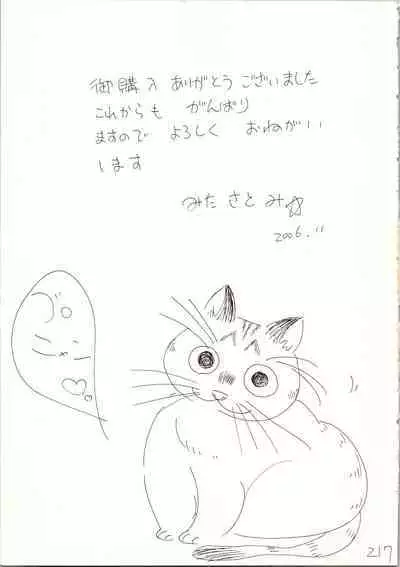 御購入 ありがとう ございました
これからも がんばり
ますので よろしく おねがい
します
みた さと み☆
2006.11
ブ。
ニャン
♡。
217